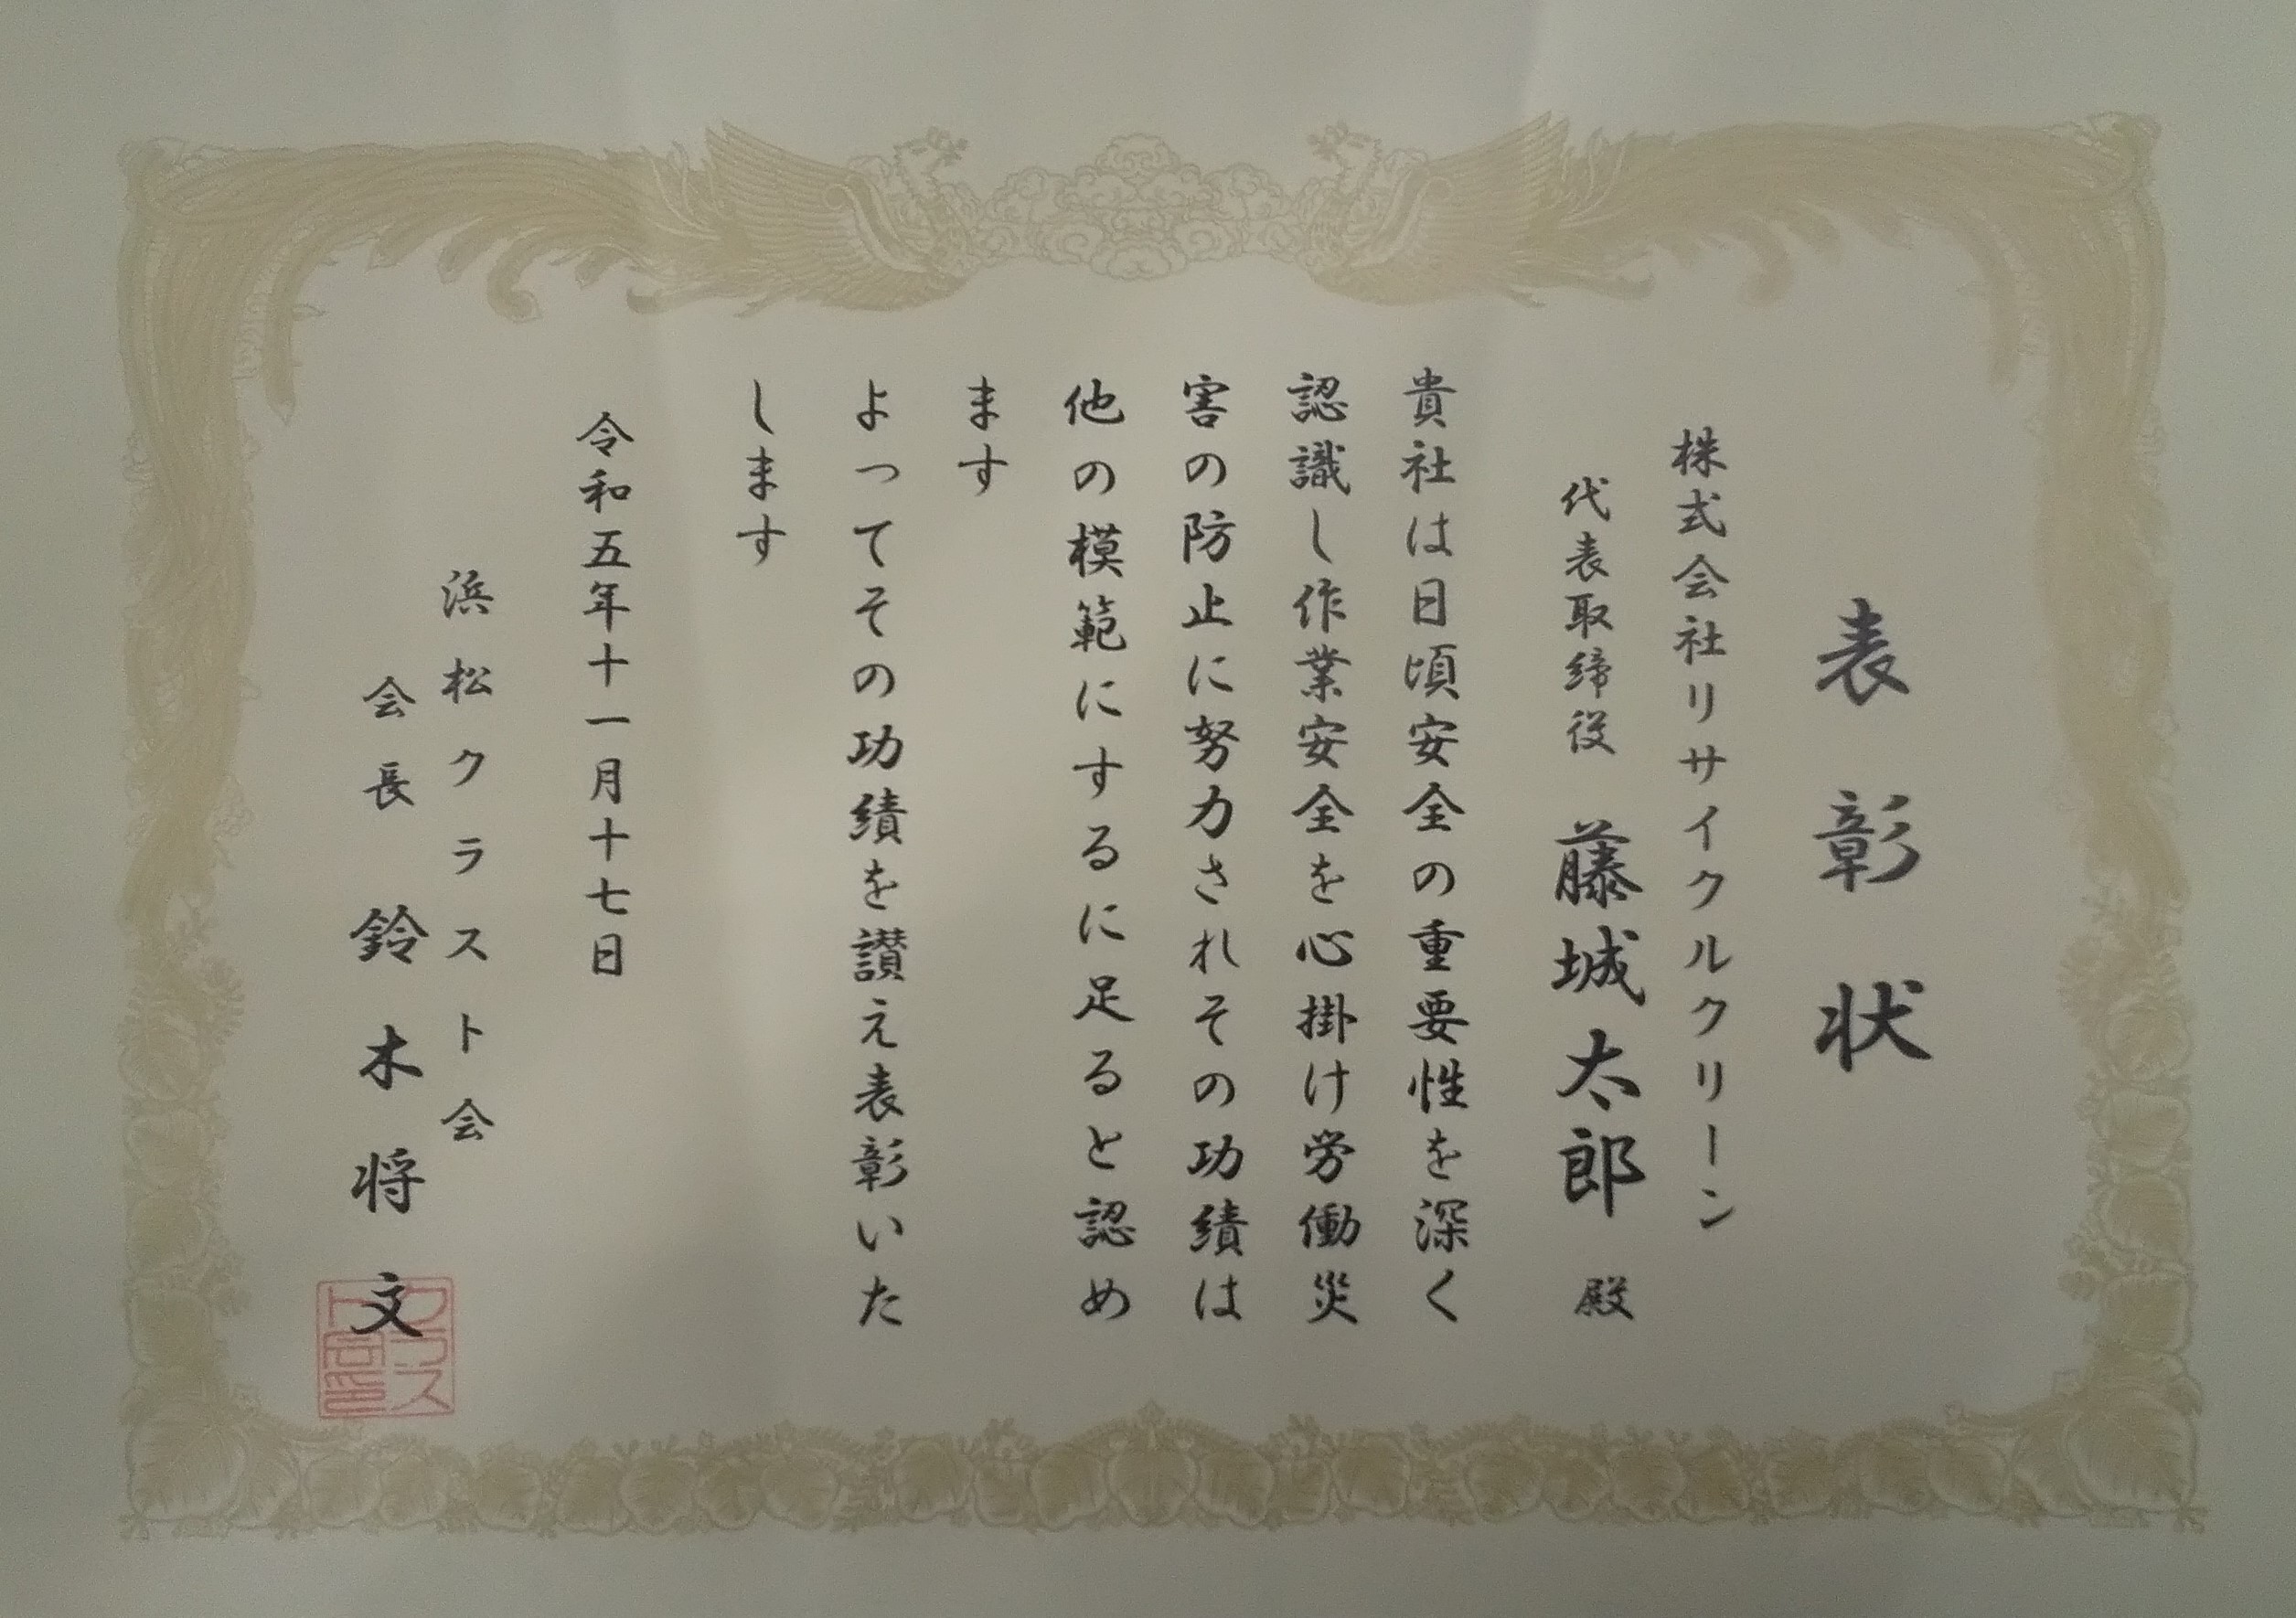 表彰状
株式会社リサイクルクリーン
代表取締役 藤城太郎 殿
貴社は日頃安全の重要性を深く
認識し作業安全を心掛け労働災
害の防止に努力されその功績は
他の模範にするに足ると認め
ます
よってその功績を讃え表彰いた
します
令和五年十一月十七日
浜松クラスト会
会長 鈴木将文
クラス
ト会印